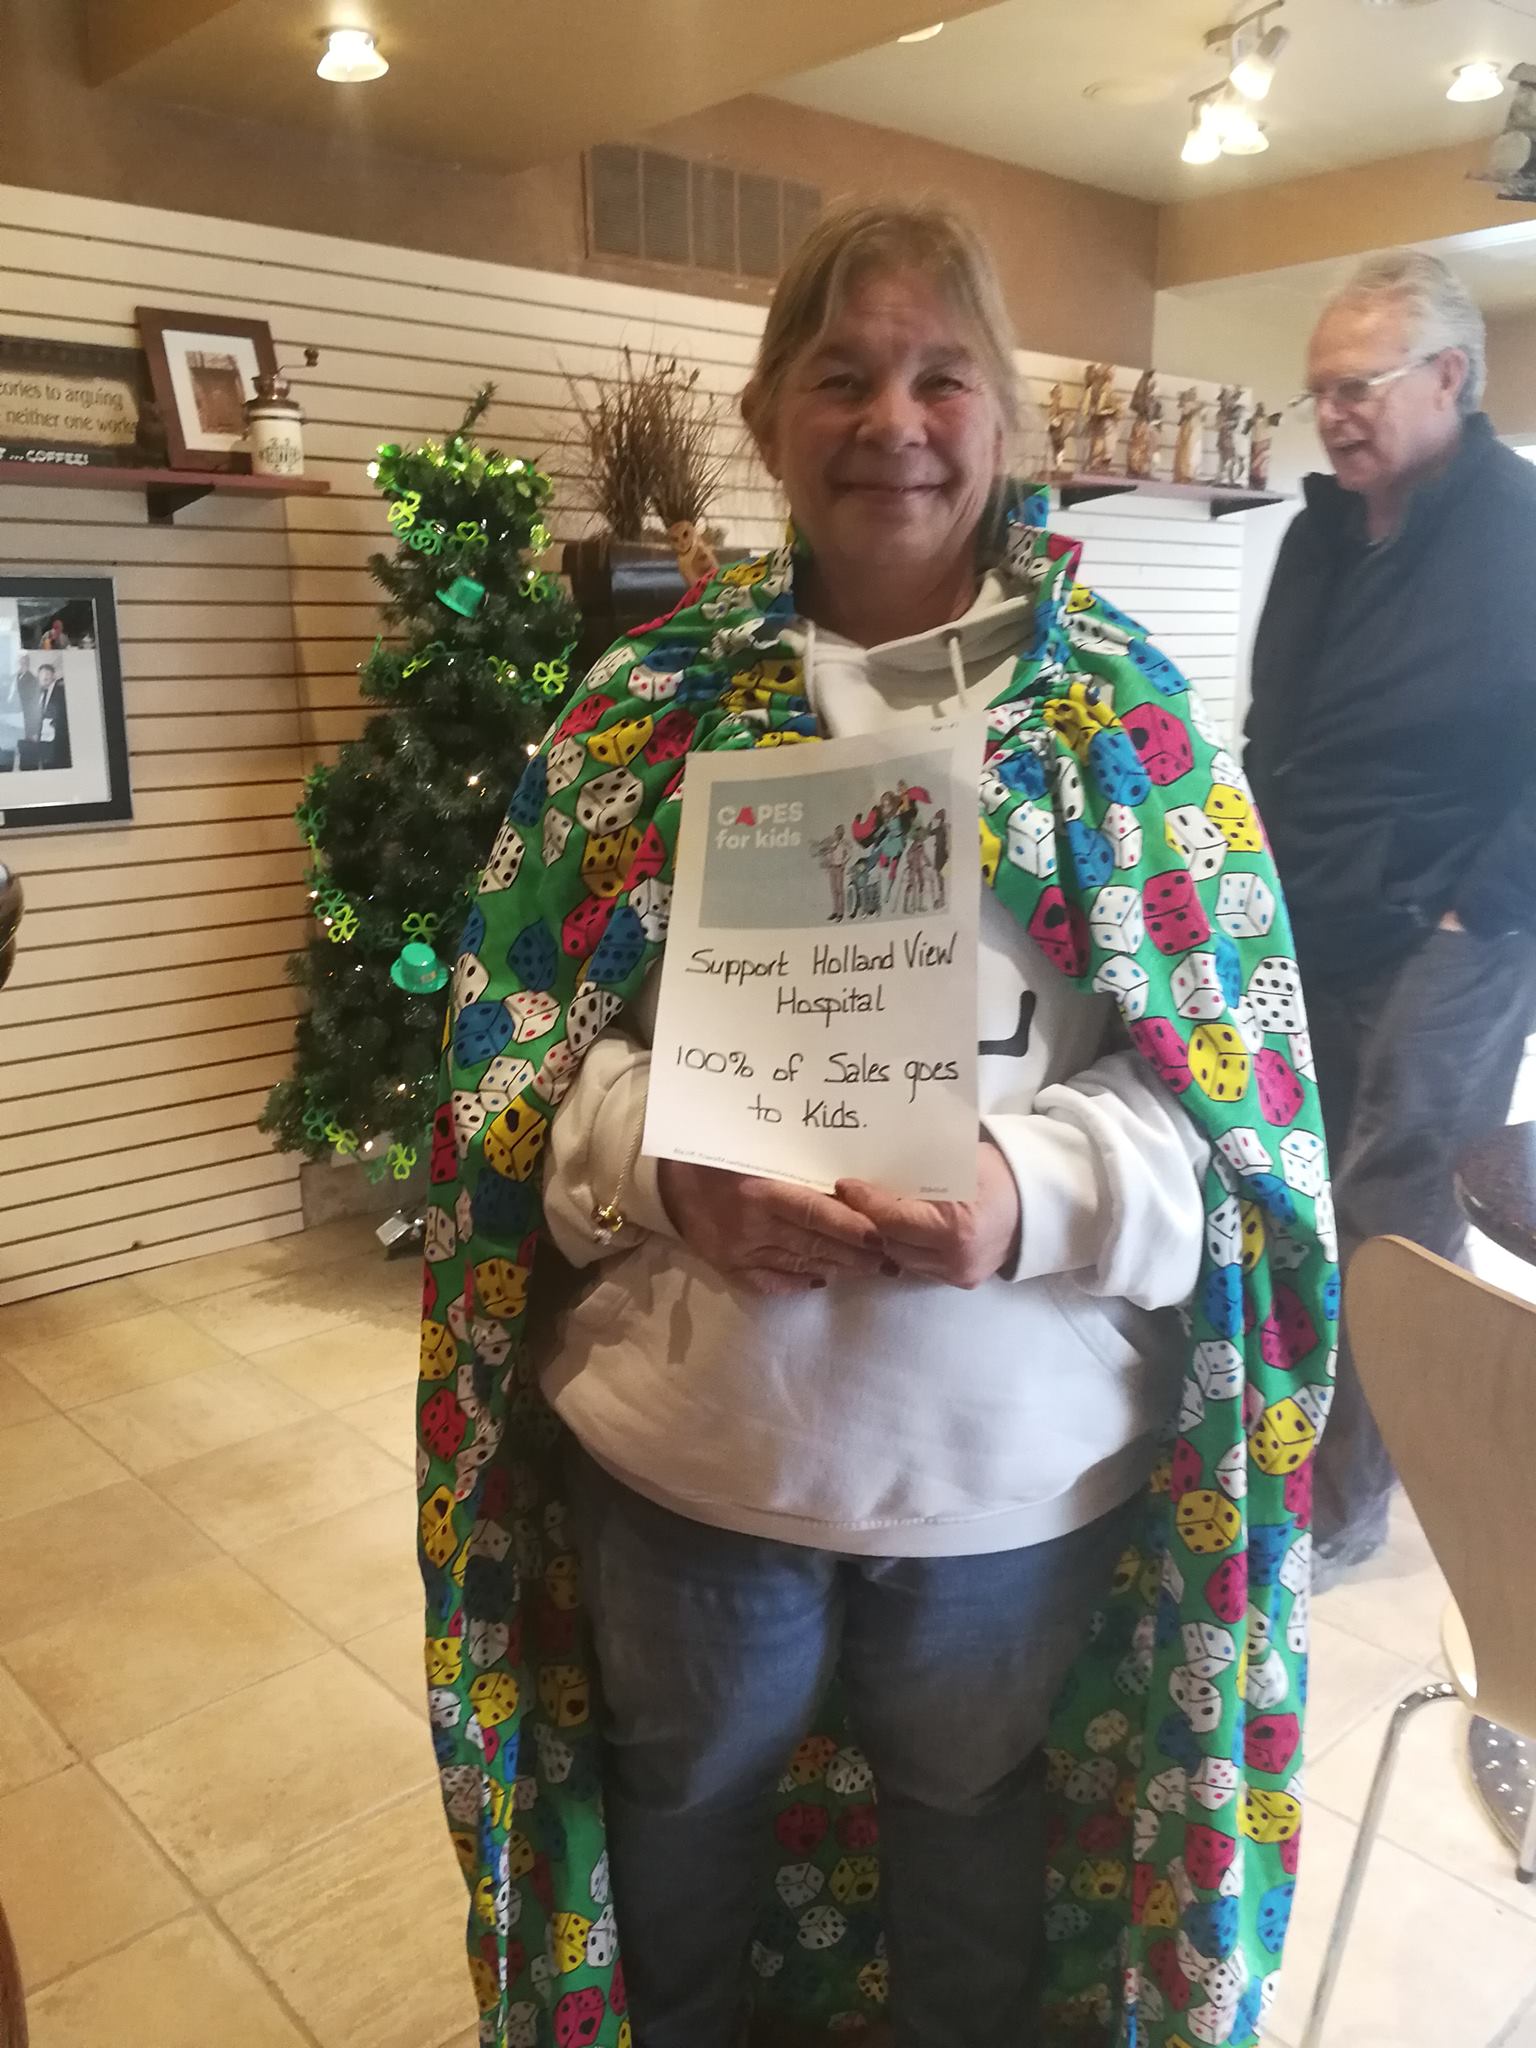 ories to arguing
neither one works
... COFFEE!
CAPES
for kids
Support Holland View
Hospital
100% of Sales goes
to Kids.